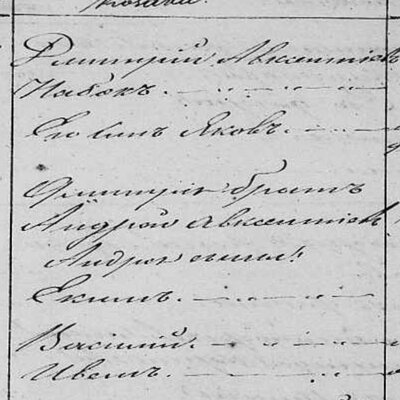 Козаки.
Дмитрий Авксентиевъ
Набокъ.
Его сынъ Яковъ.
Дмитрія братъ
Андрей Авксентіевъ
Андрея сыны:
Екимъ.
Василий.
Иванъ.